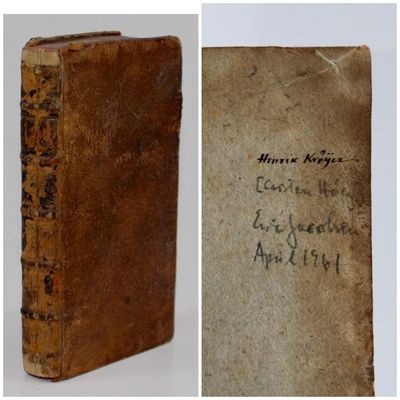 Henrik Krøyer
[Carsten Høeg
Eric Jacobsen
April 1961